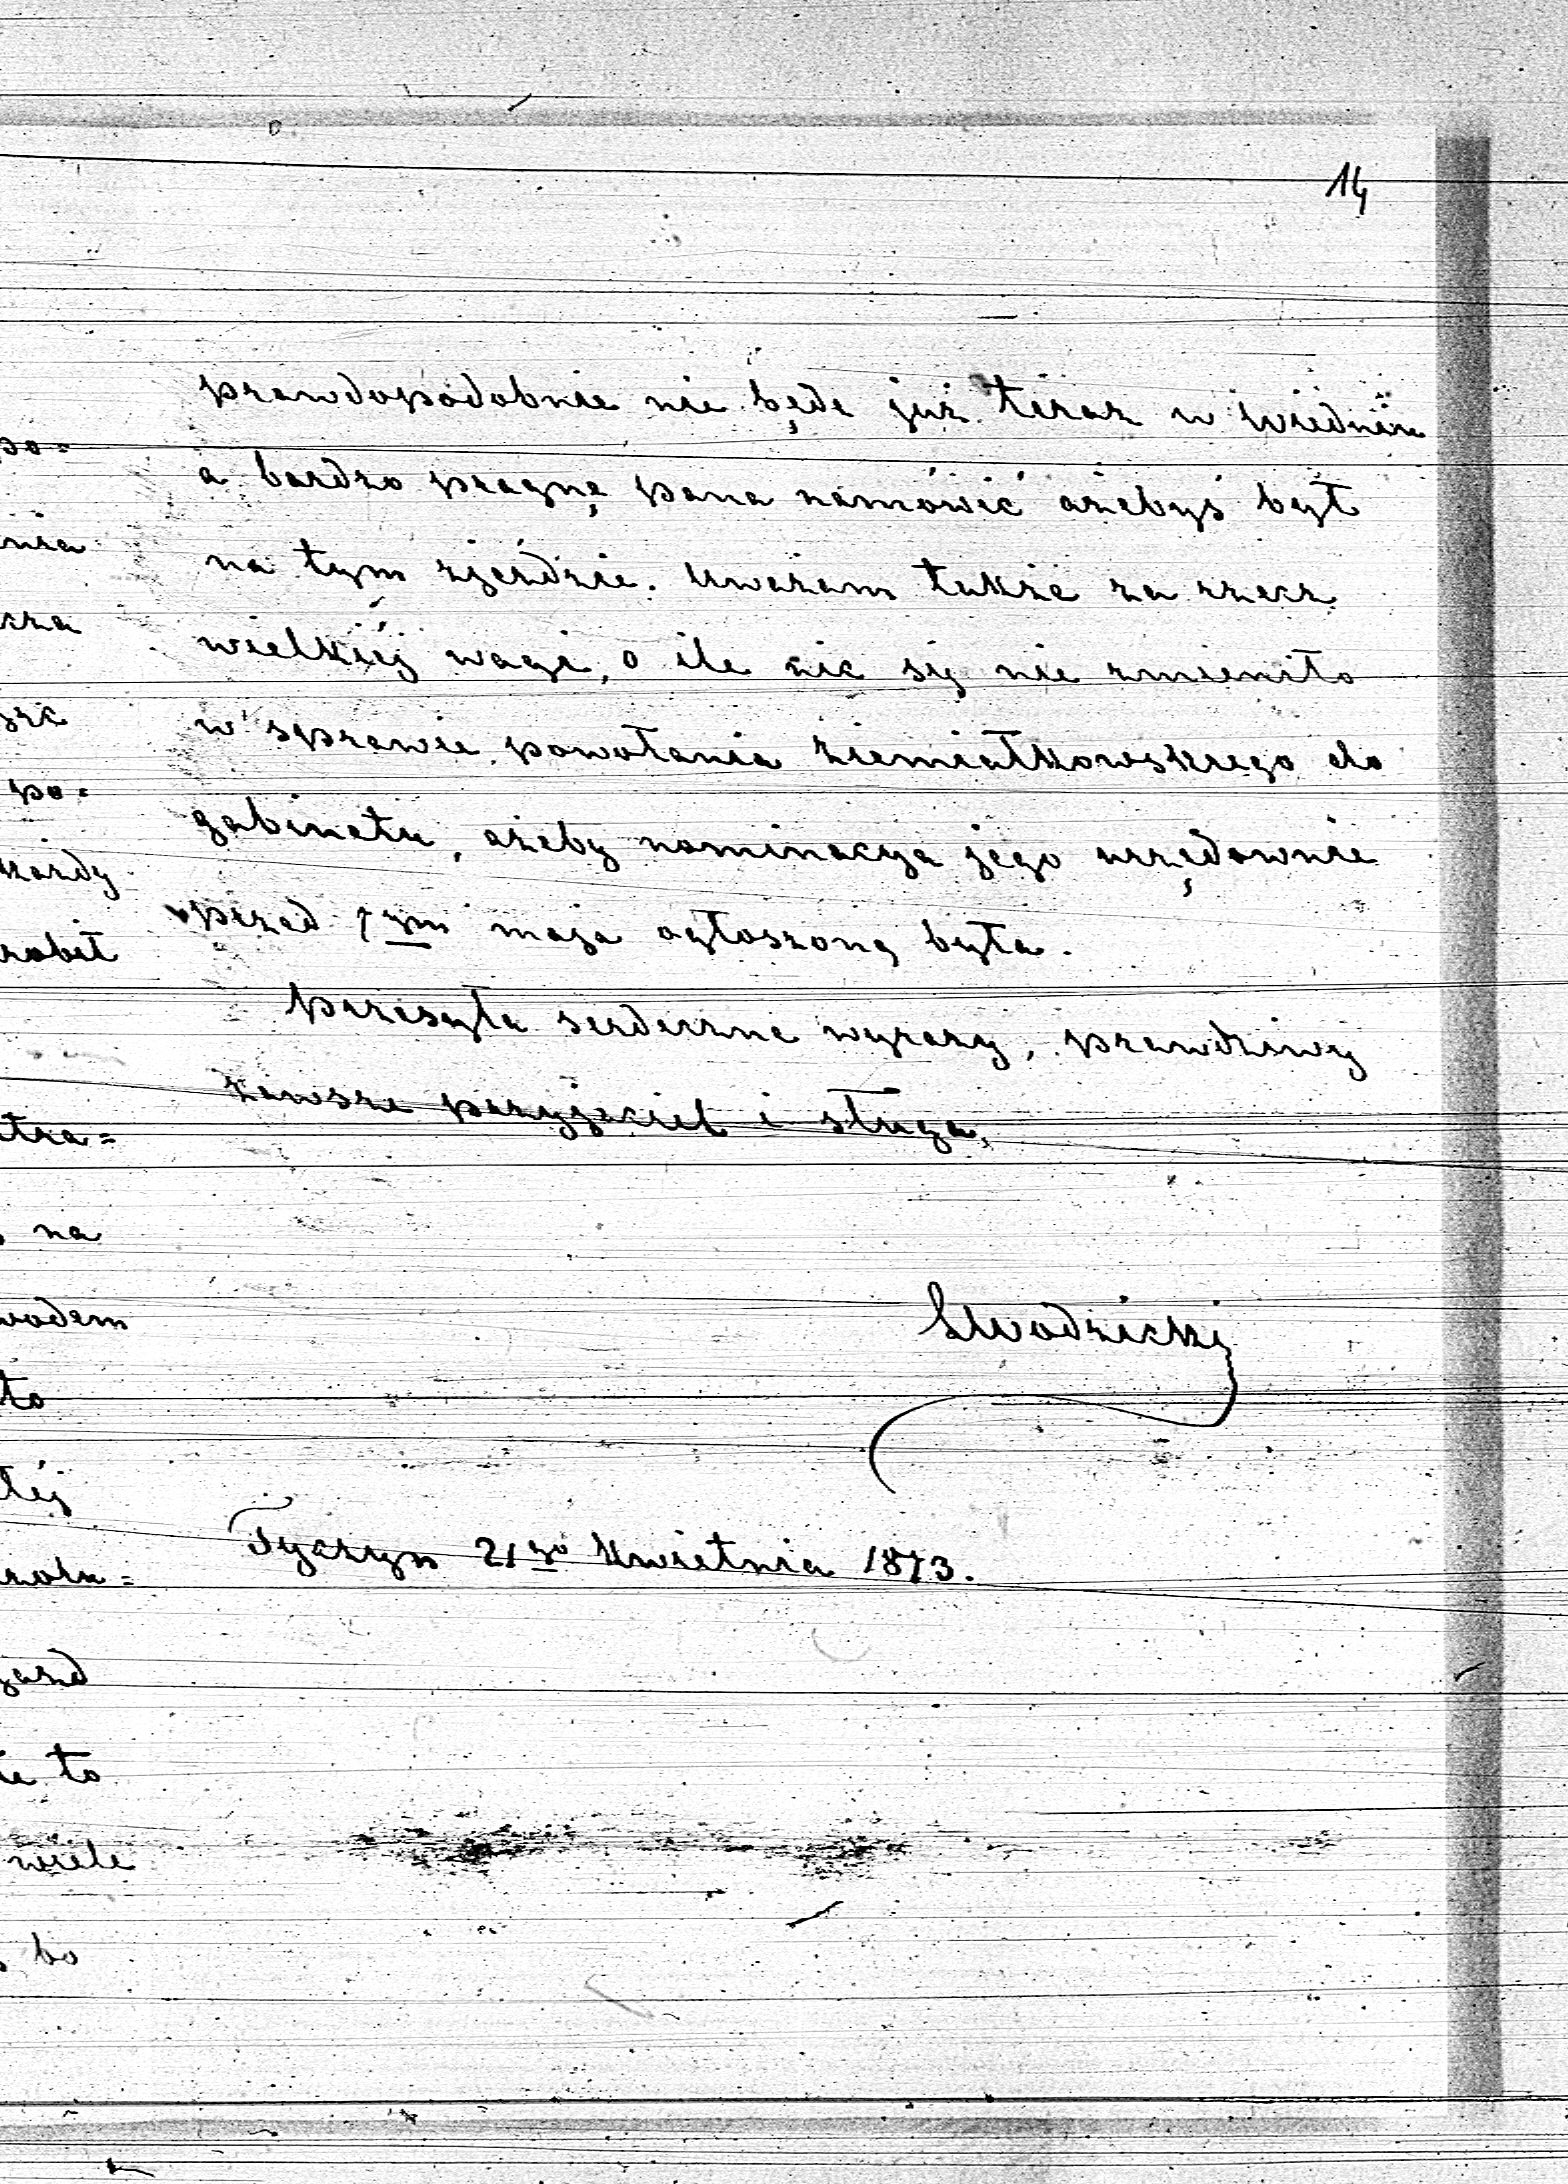 14
prawdopodobnie nie będe już teraz w Wiedniu
a bardzo pragnę pana namówić ażebyś był
na tym zjeździe. Uważam także za rzecz
wielkiéj wagi, o ile nic się nie zmieniło
w sprawie powołania Ziemiałkowskiego do
gabinetu, ażeby nominacya jego urzędownie
przed 1ym maja ogłoszoną była.
Przesyła serdeczne wyrazy, prawdziwy
zawsze przyjaciel i sługa,
LWodzicki
Tyczyn 21go Kwietnia 1873.
po=
nia
cza
po=
każdy
robił
tra=
na
wodem
to
téj
jazd
ie to
wiele
bo